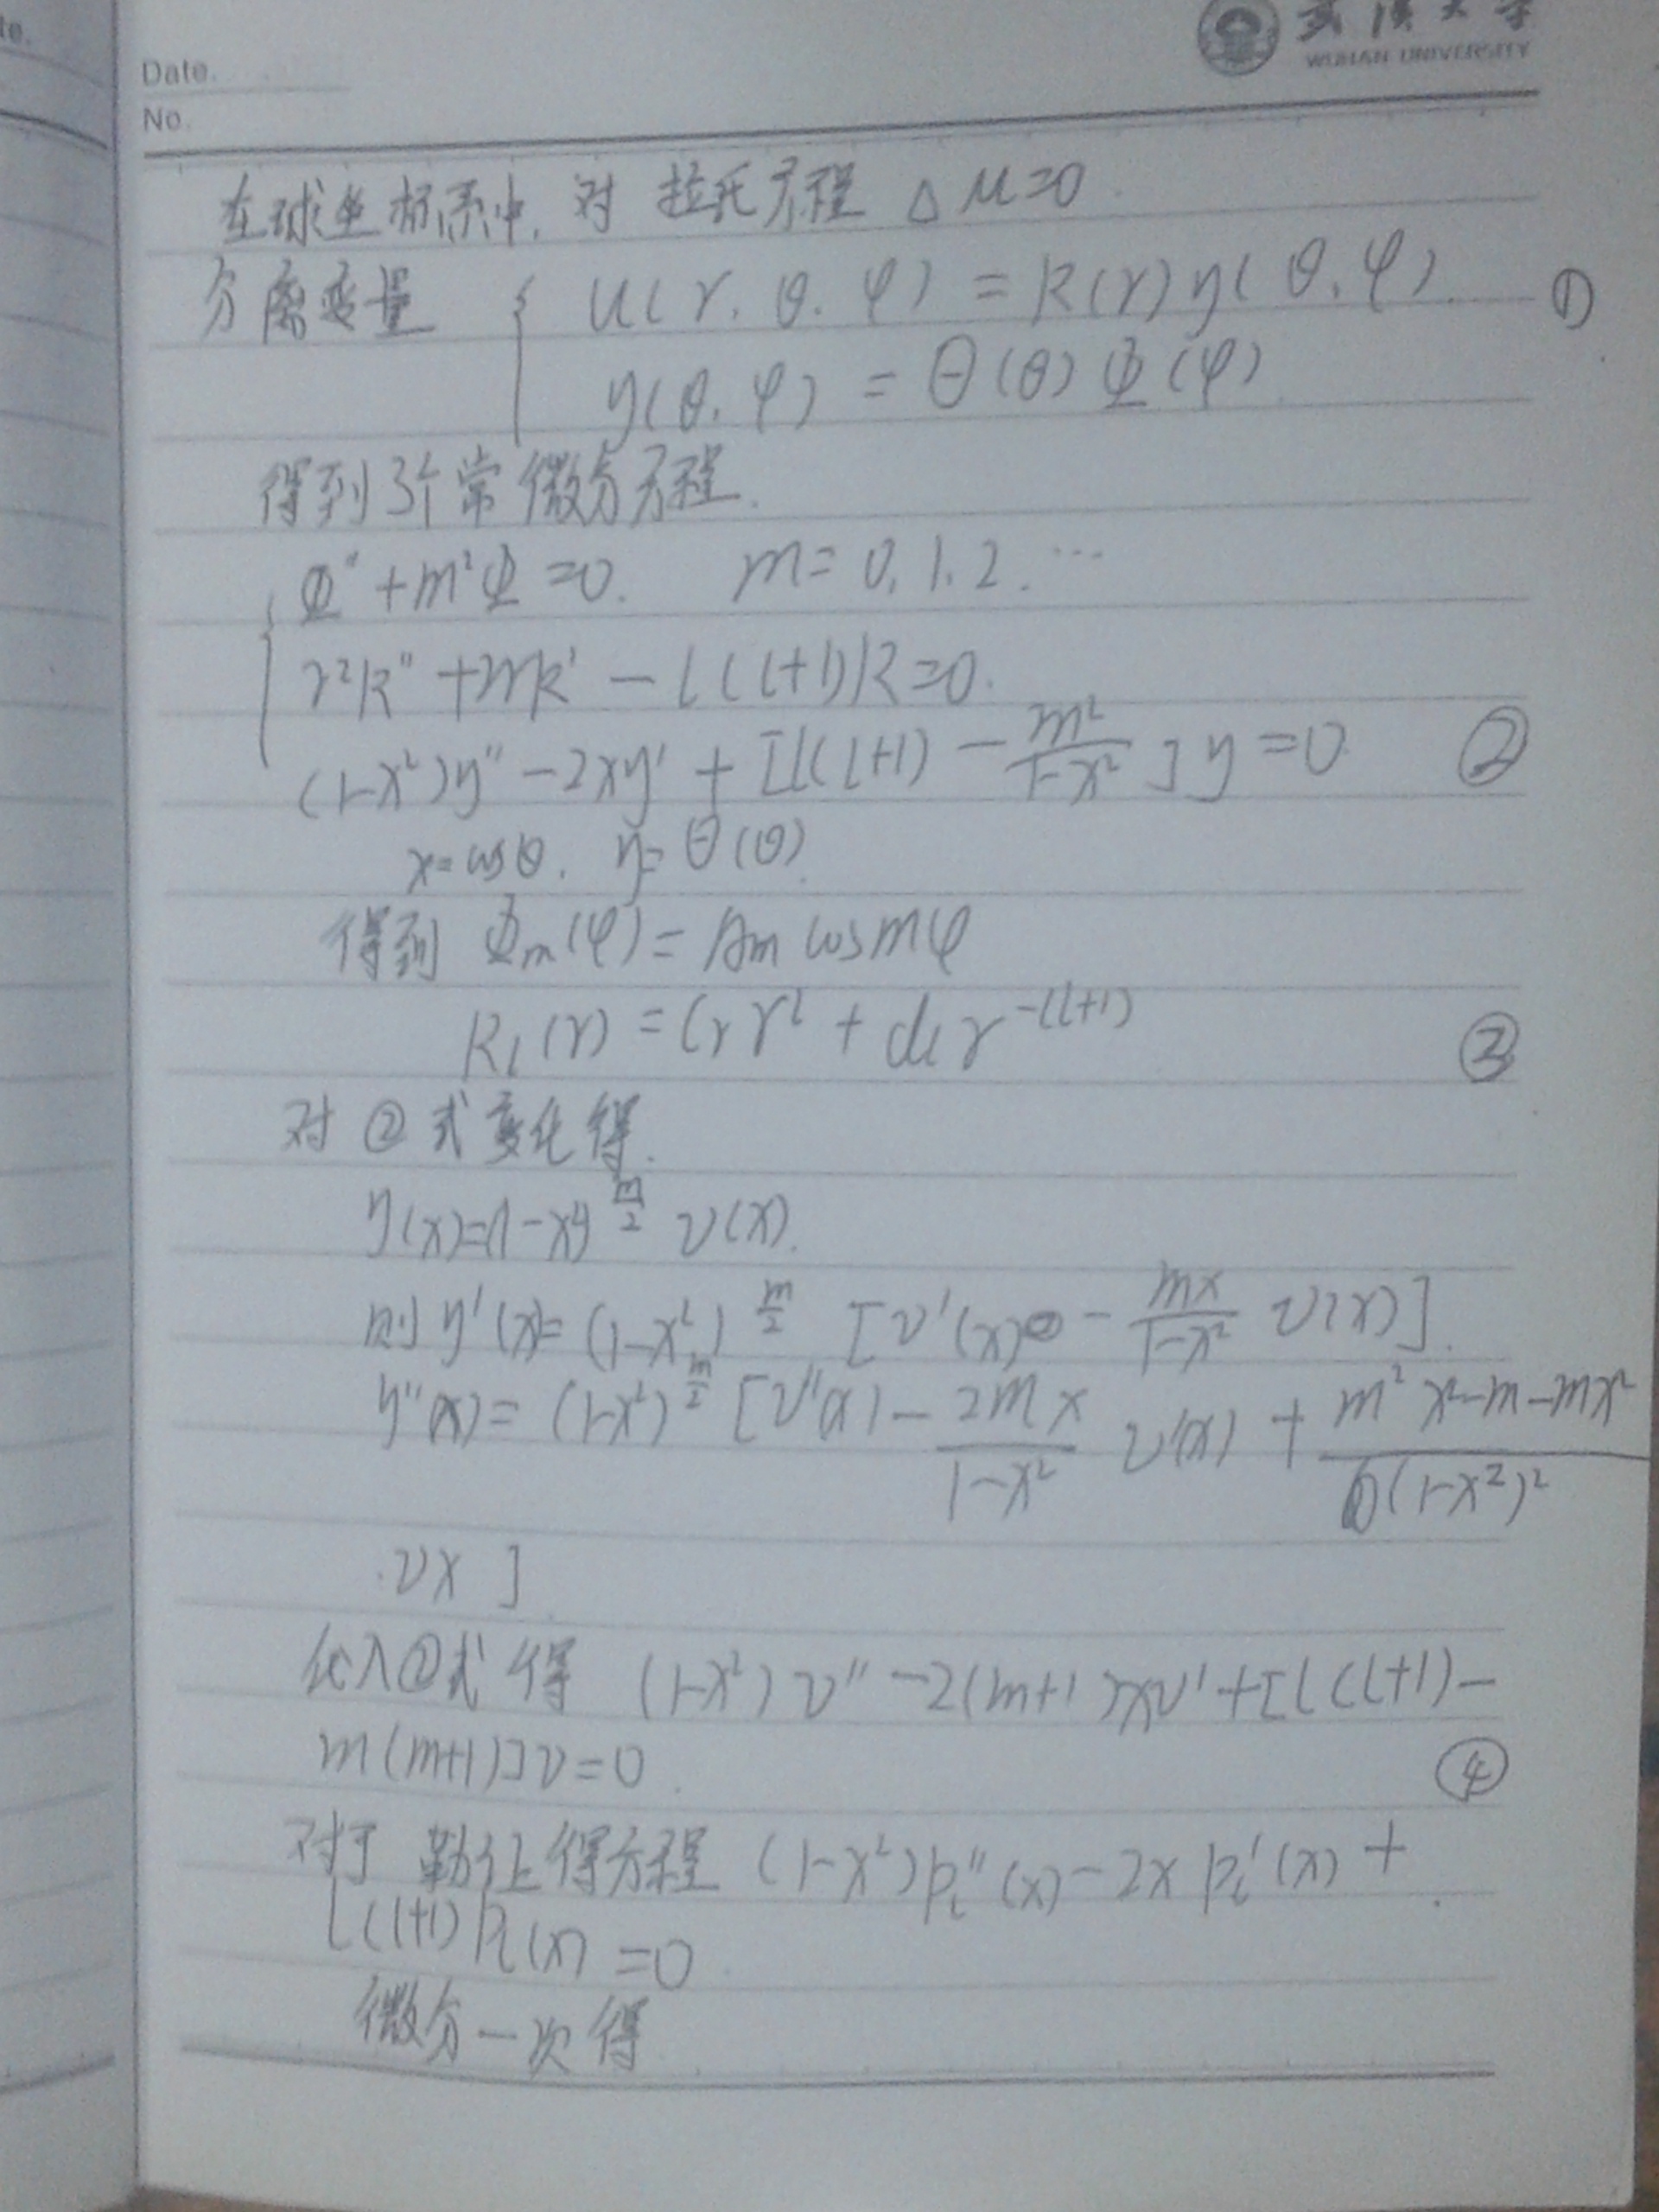 te.
武汉大学
WUHAN UNIVERSITY
Date.
No.
在球坐标系中, 对 拉氏方程 Δu=0.
分离变量 { u(r.θ.φ) = R(r)y(θ.φ). ①
y(θ.φ) = Θ(θ)Φ(φ)
得到3个常微分方程.
Φ″+m²Φ=0. m=0.1.2.…
r²R″+2rR′-l(l+1)R=0.
(1-x²)y″-2xy′+[l(l+1)-m²/(1-x²)]y=0 ②
x=cosθ. y=Θ(θ)
得到 Φm(φ)=Am cosmφ
Rl(r)=Cr r^l+dl r^-(l+1) ③
对②式变化得.
y(x)=(1-x²)^(m/2) v(x).
则y′(x)=(1-x²)^(m/2) [v′(x)-mx/(1-x²) v(x)].
y″(x)=(1-x²)^(m/2) [v″(x)-2mx/(1-x²) v′(x)+(m²x²-m-mx²)/(1-x²)²
·vx]
代入②式得 (1-x²)v″-2(m+1)xv′+[l(l+1)-
m(m+1)]v=0. ④
对于勒让得方程 (1-x²)Pl″(x)-2xPl′(x)+
l(l+1)Pl(x)=0.
微分一次得